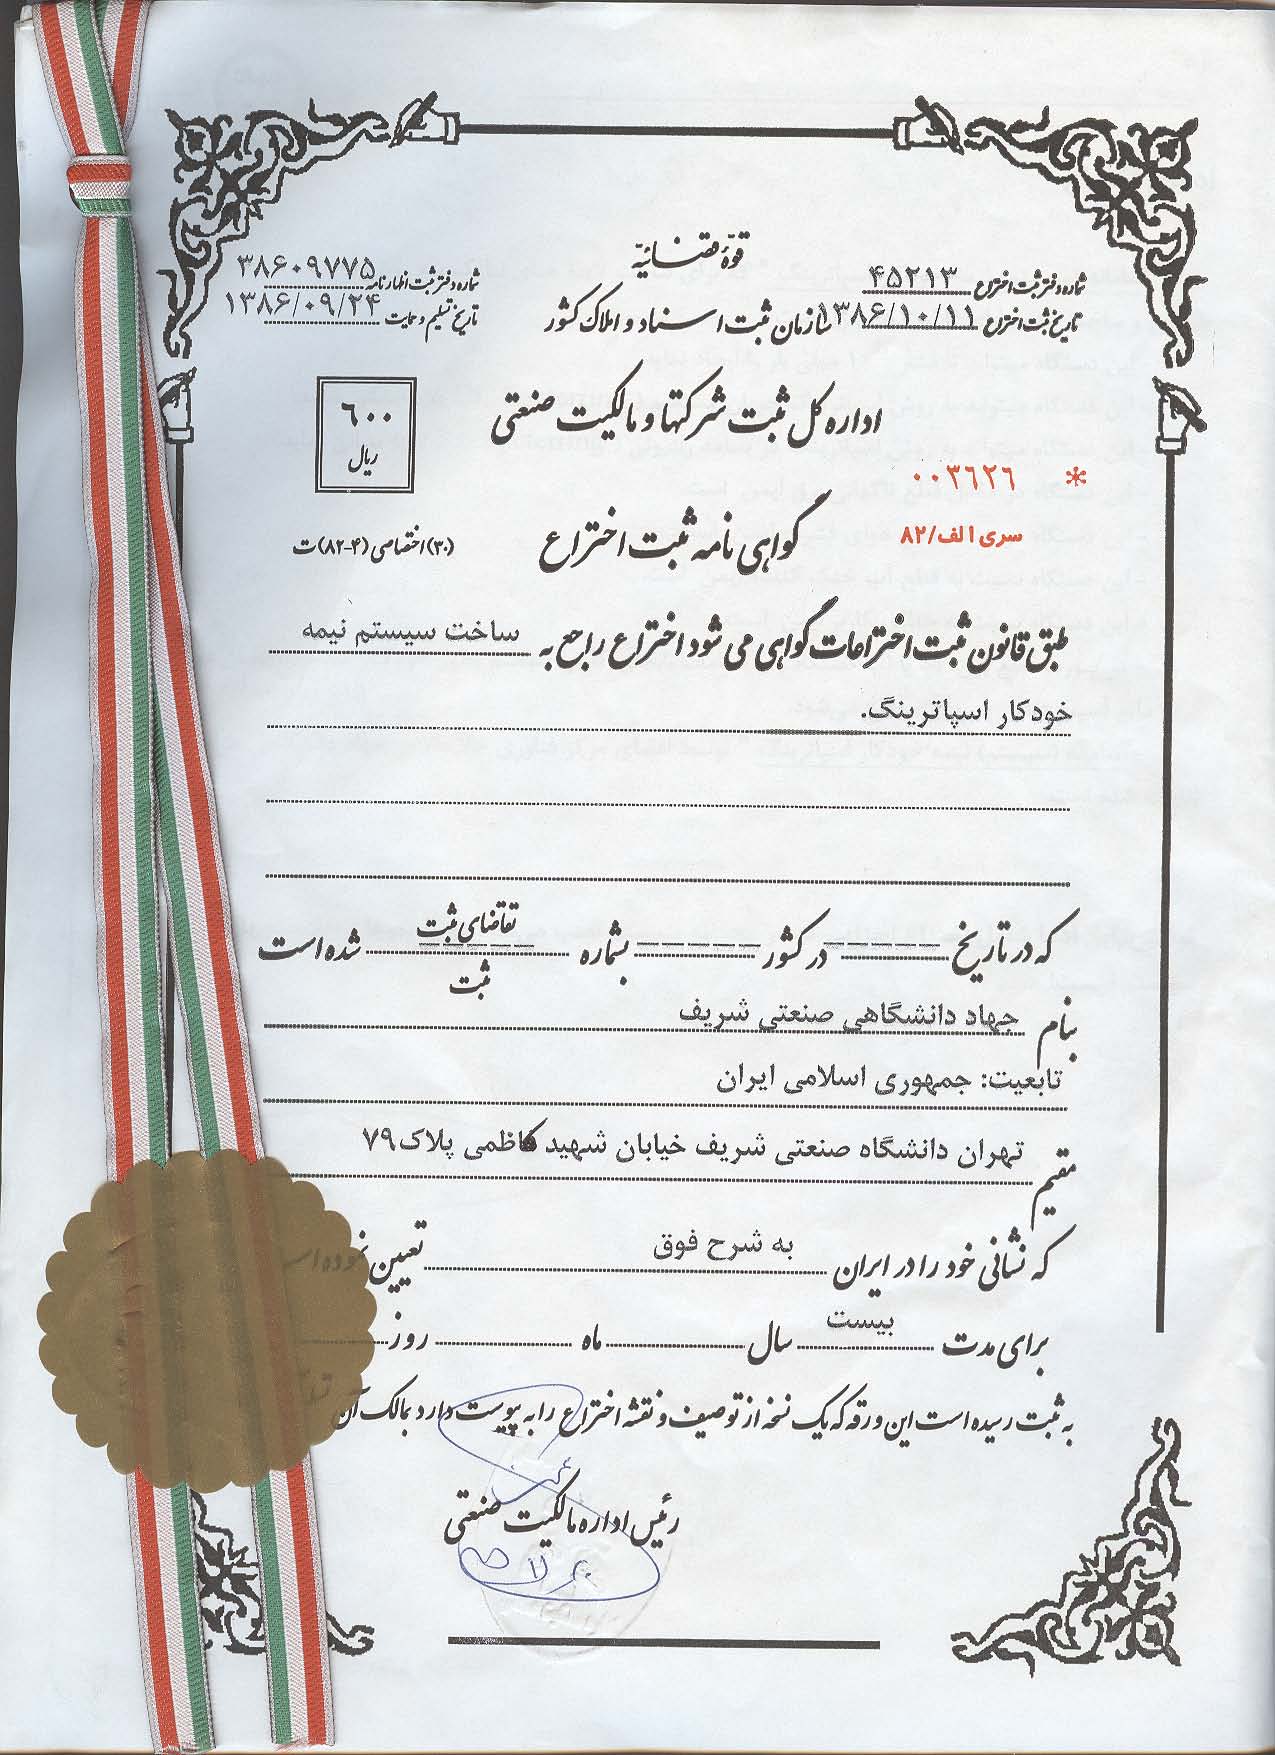 قوّهٔ قضائیّه
شماره دفتر ثبت اختراع ۴۵۲۱۳
شماره دفتر ثبت اظهارنامه ۳۸۶۰۹۷۷۵
سازمان ثبت اسناد و املاک کشور
تاریخ ثبت اختراع ۱۳۸۶/۱۰/۱۱
تاریخ تسلیم و حمایت ۱۳۸۶/۰۹/۲۴
اداره کل ثبت شرکتها و مالکیت صنعتی
۶۰۰
ریال
* ۰۰۳۶۲۶
سری الف/۸۲
گواهی نامه ثبت اختراع
(۳۰) اختصاصی (۴-۸۲) ت
طبق قانون ثبت اختراعات گواهی می شود اختراع راجع به ساخت سیستم نیمه
خودکار اسپاترینگ.
که در تاریخ ------ در کشور ------ بشماره تقاضای ثبت ------ ثبت شده است
بنام جهاد دانشگاهی صنعتی شریف
تابعیت: جمهوری اسلامی ایران
مقیم تهران دانشگاه صنعتی شریف خیابان شهید کاظمی پلاک ۷۹
که نشانی خود را در ایران به شرح فوق تعیین نموده
برای مدت بیست سال ماه روز
به ثبت رسیده است این ورقه که یک نسخه از توصیف و نقشه اختراع را به پیوست دارد بمالک آن
رئیس اداره مالکیت صنعتی